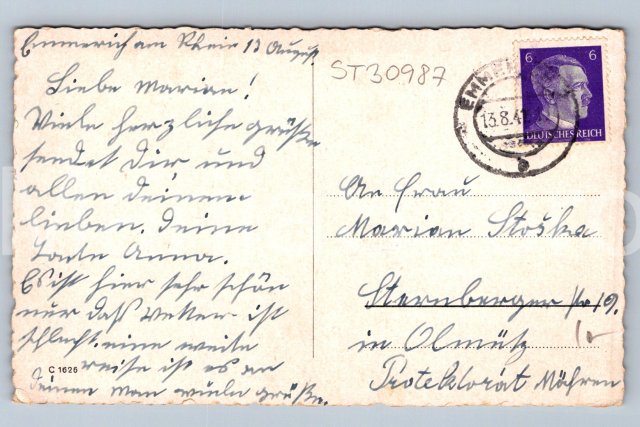 Emmerich am Rhein 13 August
Liebe Marian!
Viele herzliche grüße
sendet Dir und
allen deinem
lieben. Deine
Tante Anna.
Es ist hier sehr schön
nur daß Wetter ist
schlecht. eine weite
reise ist es an
deinen man viele grüße.
C 1626
ST30987
EMME
13.8.4
6 6
DEUTSCHES REICH
An Frau
Marian Stoška
Sternberger 19.
in Olmütz
Protektorat Mähren